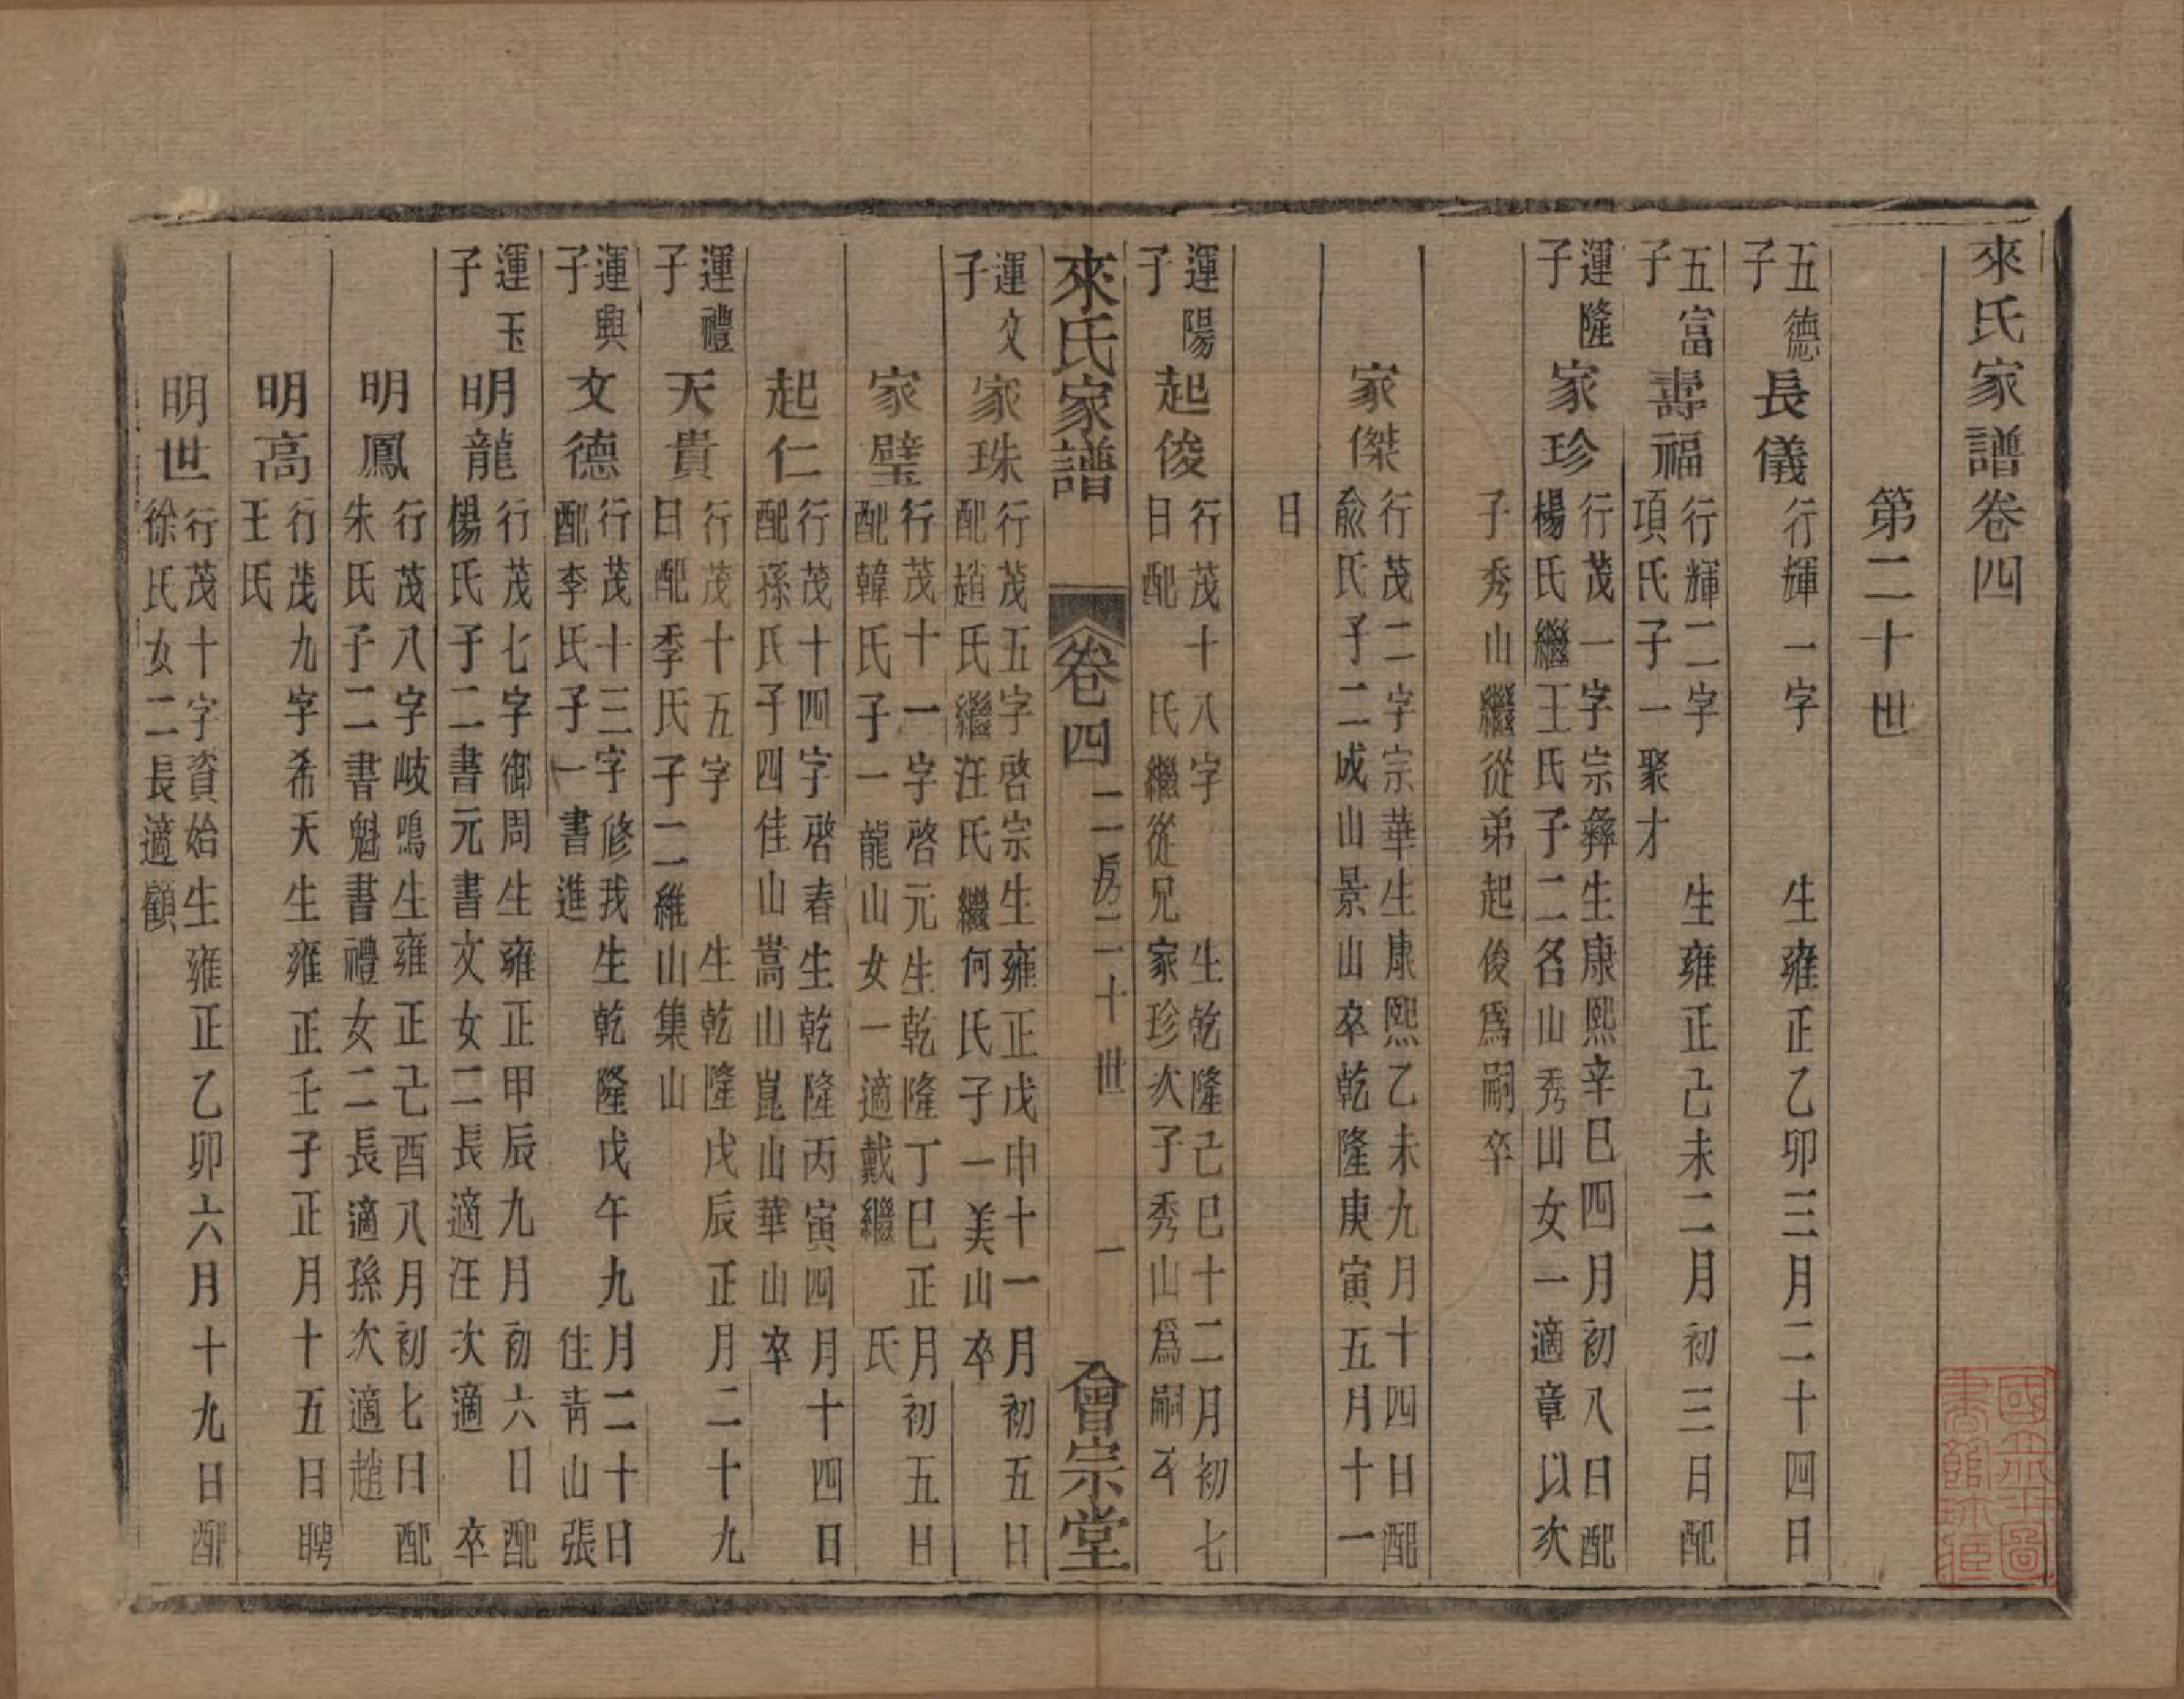 來氏家譜卷四
第二十世
五德子 長儀 行輝一字 生雍正乙卯三月二十四日
五富子 壽福 行輝二字 生雍正己未二月初三日配
項氏子一聚才
運隆子 家珍 行茂一字宗彝生康熙辛巳四月初八日配
楊氏繼王氏子二名山秀山女一適章以次
子秀山繼從弟起俊爲嗣卒
家傑 行茂二字宗華生康熙乙未九月十四日配
兪氏子二成山景山卒乾隆庚寅五月十一
日
運陽子 起俊 行茂十八字 生乾隆己巳十二月初七
日配 氏繼從兄家珍次子秀山爲嗣卒
來氏家譜 卷四 二房二十世 一 會宗堂
運文子 家珠 行茂五字啓宗生雍正戊申十一月初五日
配趙氏繼汪氏繼何氏子一美山卒
家璧 行茂十一字啓元生乾隆丁巳正月初五日
配韓氏子一龍山女一適戴繼 氏
起仁 行茂十四字啓春生乾隆丙寅四月十四日
配孫氏子四佳山嵩山崑山華山卒
運禮子 天貴 行茂十五字 生乾隆戊辰正月二十九
日配季氏子二維山集山
運興子 文德 行茂十三字修我生乾隆戊午九月二十日
配李氏子一書進 住靑山張
運玉子 明龍 行茂七字御周生雍正甲辰九月初六日配
楊氏子二書元書文女二長適汪次適 卒
明鳳 行茂八字岐鳴生雍正己酉八月初七日配
朱氏子二書魁書禮女二長適孫次適趙
明高 行茂九字希天生雍正壬子正月十五日聘
王氏
明世 行茂十字資始生雍正乙卯六月十九日配
徐氏女二長適顧
國立北平圖書館珍藏